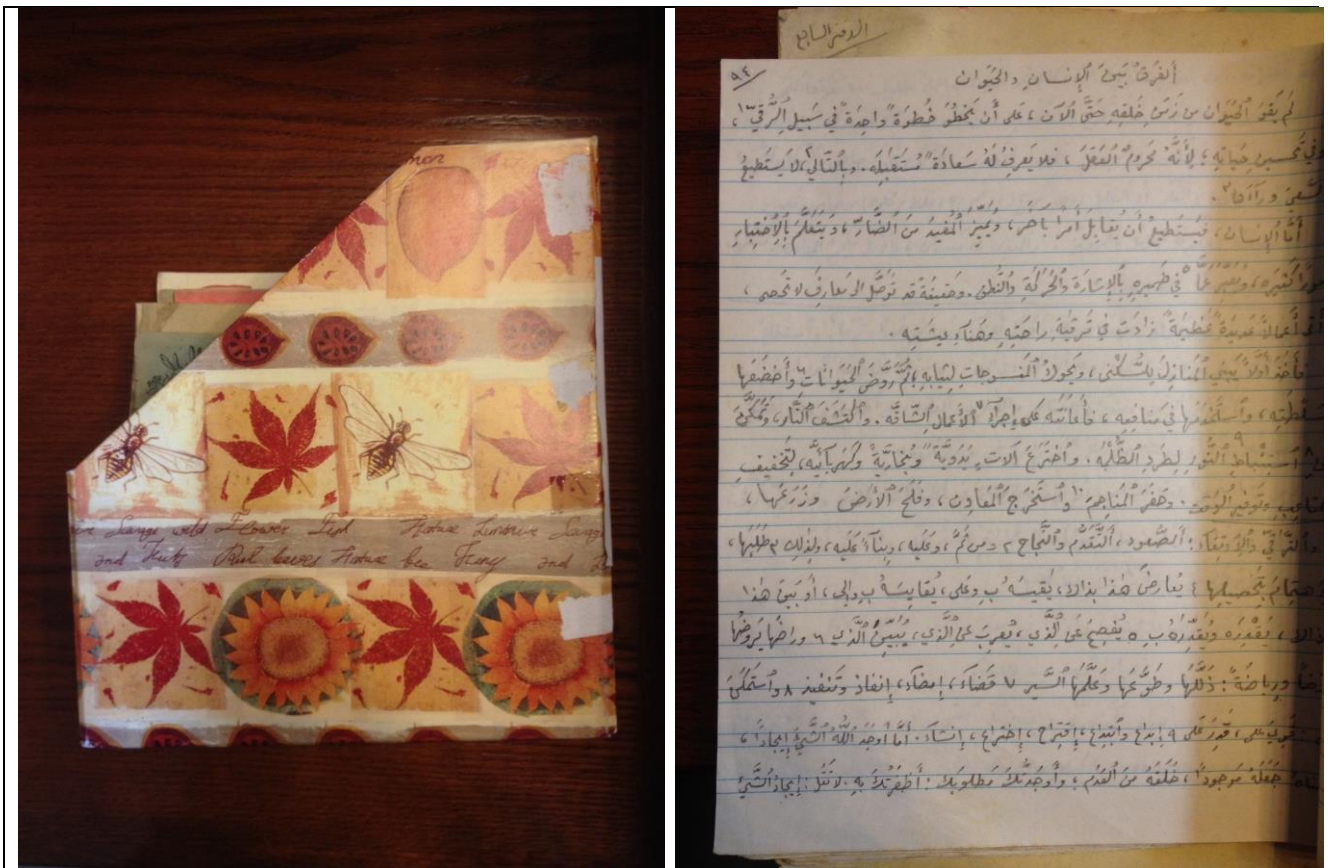 mon
Large wild Flower
Nature Luminous
and Fruits
Nature bee
and
الدفتر السابع
٩٤
ألفرق بين ٱلإنسان والحيوان
لم يقو ٱلحيوان من زمن خلقه حتى ٱلآن ، على أن يخطو خطوة واحدة في سبيل ٱلرقي ١ ،
وفي تحسين حياته ؛ لأنه محروم ٱلعقل ، فلا يعرف له سعادة مستقبله . وبالتالي ٢ ، لا يستطيع
ٱلسعي ورآءها ٣ .
أما ٱلإنسان ، فيستطيع أن يقابل أمرا بآخر ، ويميز ٱلمفيد من ٱلضار ، ويتعلم بٱلإختبار
كثيره ، في ضميره بٱلإشارة وٱلحركة وٱلنطق . قد توصل الى معارف لا تحصى ،
أعمالا عديدة عظيمة زادت في ترقية راحته وهنآء عيشته .
فأخذ أولا يبني ٱلمنازل للسكنى ، ويحول ٱلمنسوجات لثيابه ، ثم روض ٱلحيوانات ٦ وأخضعها
لسلطته ، وٱستخدمها في منافعه ، فأعانته على إجرآء ٧ ٱلأعمال ٱلشاقة . وٱكتشف ٱلنار ، وتمكن
٨ ٱستنباط ٩ ٱلنور لطرد ٱلظلمه . وٱخترع آلات يدوية وبخارية وكهربائيه ، لتخفيف
وتوفير ٱلوقت . وحفر ٱلمناجم ، وٱستخرج ٱلمعادن ، وفلح ٱلأرض وزرعها ،
وٱلترقي وٱلإرتقاء : ألصعود ، ألتقدم وٱلنجاح ٢ ومن ثم ، وعليه ، وبنآء عليه ، ولذلك ٣ طلبها ،
بتحصيلها ٤ يعارض هذا بذاك ، يقيسه ب وعلى ، يقايسه ب وإلى ، أو بين هذا
وذاك ، يقدره ويقدره ب ٥ يفصح عن ٱلذي ، يعرب عن ٱلذي ، يبين ٱلذي ٦ وراضها يروضها
ورياضة : ذللها وطوعها وعلمها ٱلسير ٧ قضاء ، إمضآء ، إنفاذ وتنفيذ ٨ وٱستمكن
قوي على ، قدر على ٩ إبداع وٱبتداع ، إقتراح ، إختراع ، إنشآء . أما أوجد ٱلله ٱلشيء إيجادا ،
جعله موجودا ، خلقه من ٱلعدم ؛ وأوجدتك مطلوبك : أظفرتك به . لا تقل : إيجاد ٱلشيء